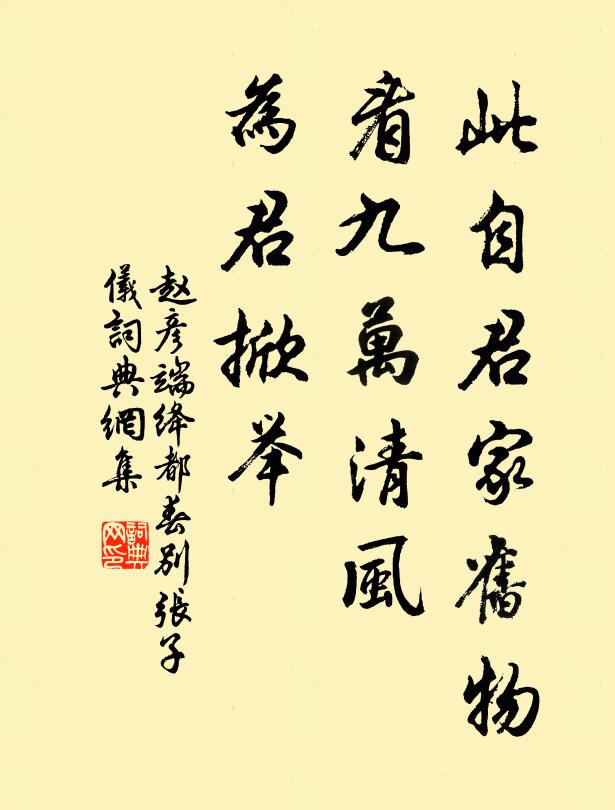 此自君家舊物
看九萬清風
為君掀举
赵彥端绛都春别張子
儀詞典網集
詞典网印